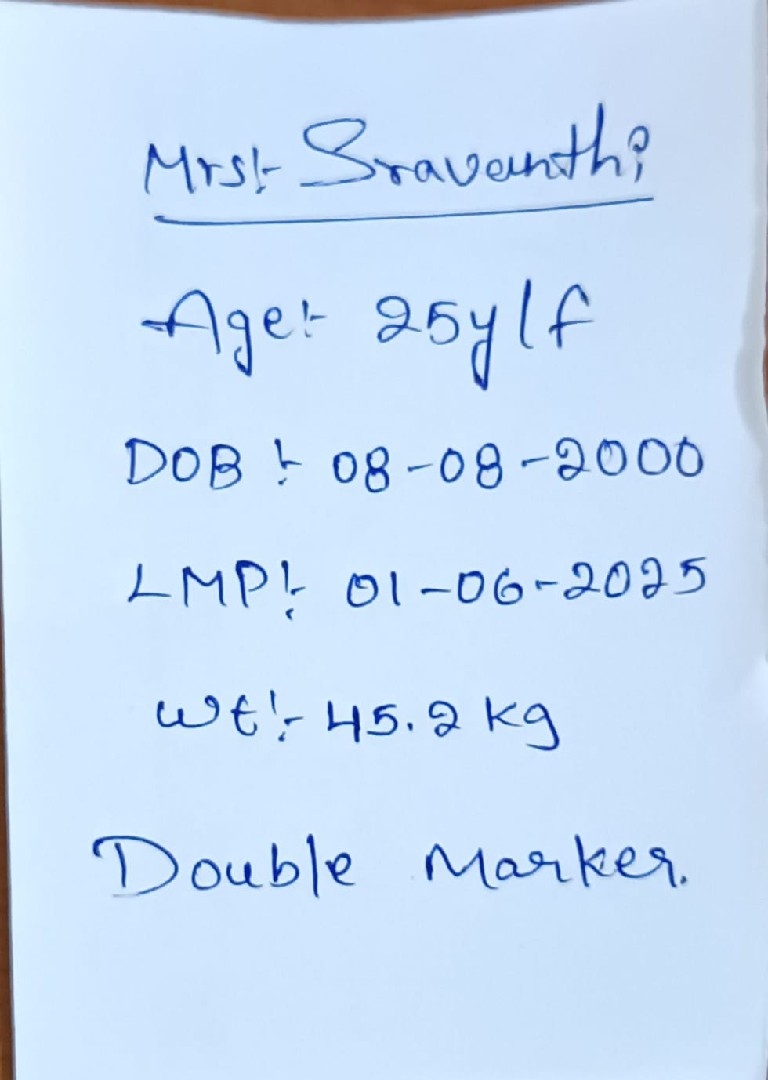 Mrs:- Sravanthi
Age:- 25y/f
DOB :- 08-08-2000
LMP:- 01-06-2025
wt:- 45.2 kg
Double Marker.